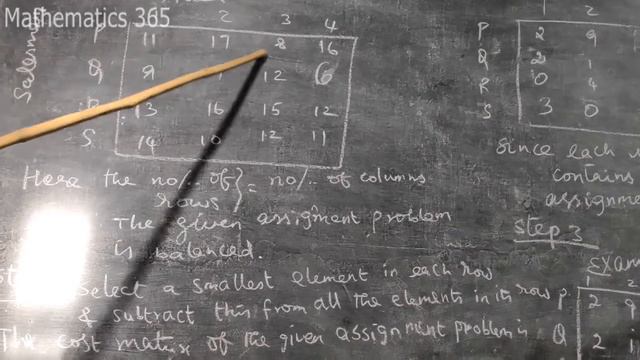 Mathematics 365
2 3 4
P 11 17 8 16
Q 9 12 6
13 16 15 12
S 14 10 12 11
Here the no/.. of rows } = no/.. of columns
The given assignment problem
is balanced.
Select a smallest element in each row
& subtract this from all the elements in its row
The cost matrix of the given assignment problem is
1 2
P 2 9
Q 2 1
R 0 4
S 3 0
Since each
contains
assignme
Step 3
Exam
1 2
P 2 9
Q 2 1